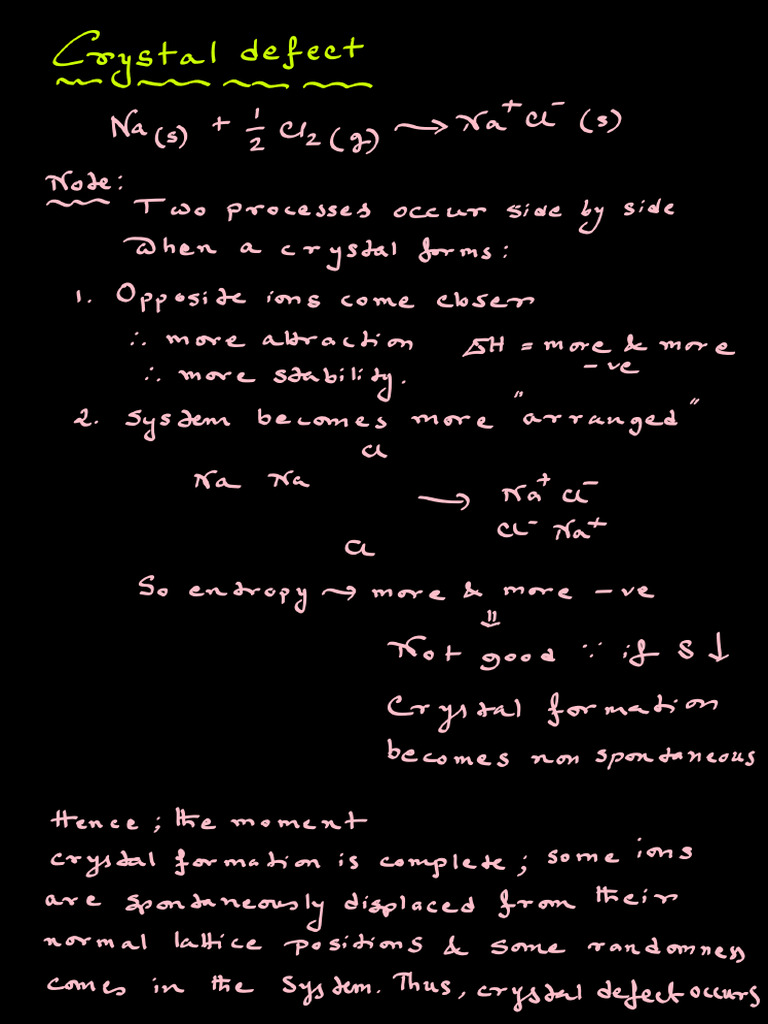 Crystal defect
Na(s) + 1/2 Cl₂(g) → Na⁺Cl⁻ (s)
Note:
Two processes occur side by side
When a crystal forms:
1. Opposite ions come closer
∴ more attraction ΔH = more & more
∴ more stability. -ve
2. System becomes more "arranged"
Cl
Na Na
→ Na⁺ Cl⁻
Cl⁻ Na⁺
Cl
So entropy → more & more -ve
⇓
Not good ∵ if S ↓
Crystal formation
becomes non spontaneous
Hence; the moment
crystal formation is complete; some ions
are spontaneously displaced from their
normal lattice positions & some randomness
comes in the system. Thus, crystal defect occurs